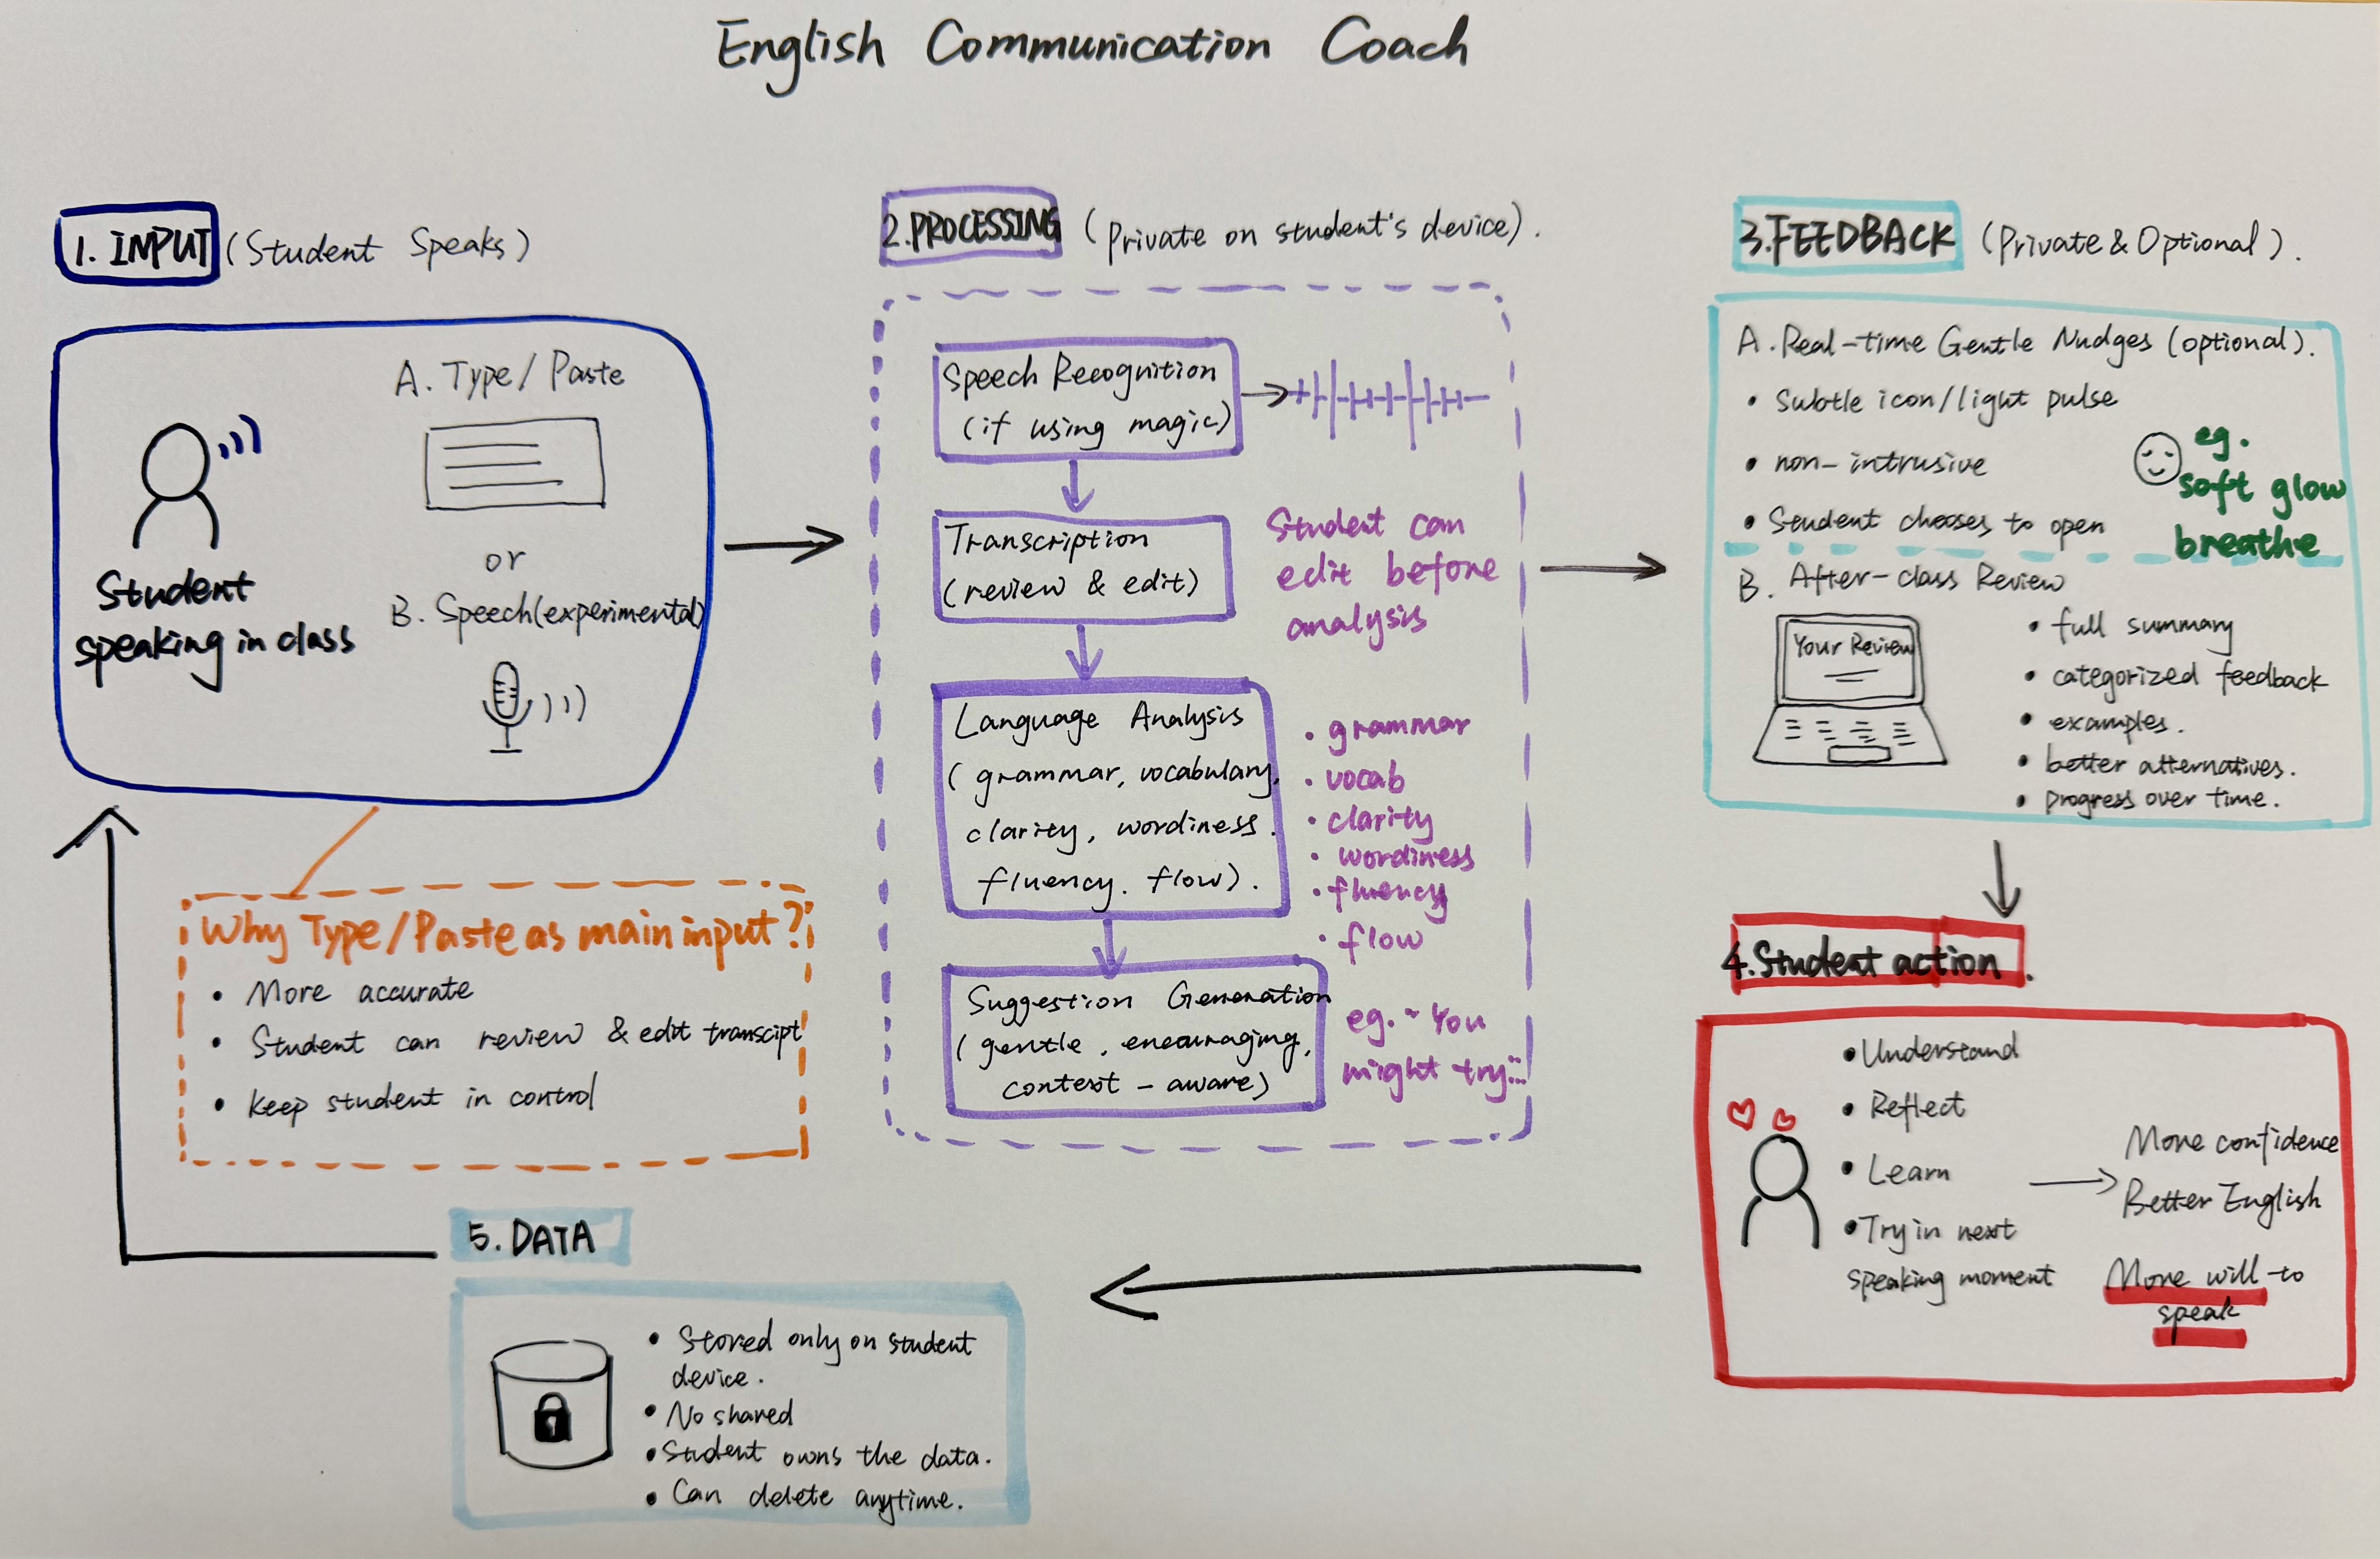 English Communication Coach
1. INPUT (Student Speaks)
A. Type/ Paste
or
B. Speech(experimental)
Student
speaking in class
Why Type/Paste as main input?
• More accurate
• Student can review & edit transcipt
• keep student in control
2.PROCESSING (Private on student's device).
Speech Recognition
(if using magic)
Transcription
(review & edit)
Student can
edit before
analysis
Language Analysis
(grammar, vocabulary,
clarity, wordiness.
fluency. flow).
• grammar
• vocab
• clarity
• wordiness
• fluency
• flow
Suggestion Generation
(gentle, encouraging,
context-aware)
eg. ~ You
might try...
3.FEEDBACK (Private & Optional).
A. Real-time Gentle Nudges (optional).
• Subtle icon/light pulse
• non-intrusive
• Student chooses to open
eg.
soft glow
breathe
B. After-class Review
Your Review
• full summary
• categorized feedback
• examples.
• better alternatives.
• progress over time.
4.Student action.
• Understand
• Reflect
• Learn
• Try in next
speaking moment
More confidence
Better English
More will-to
speak
5. DATA
• Stored only on student
device.
• No shared
• Student owns the data.
• Can delete anytime.